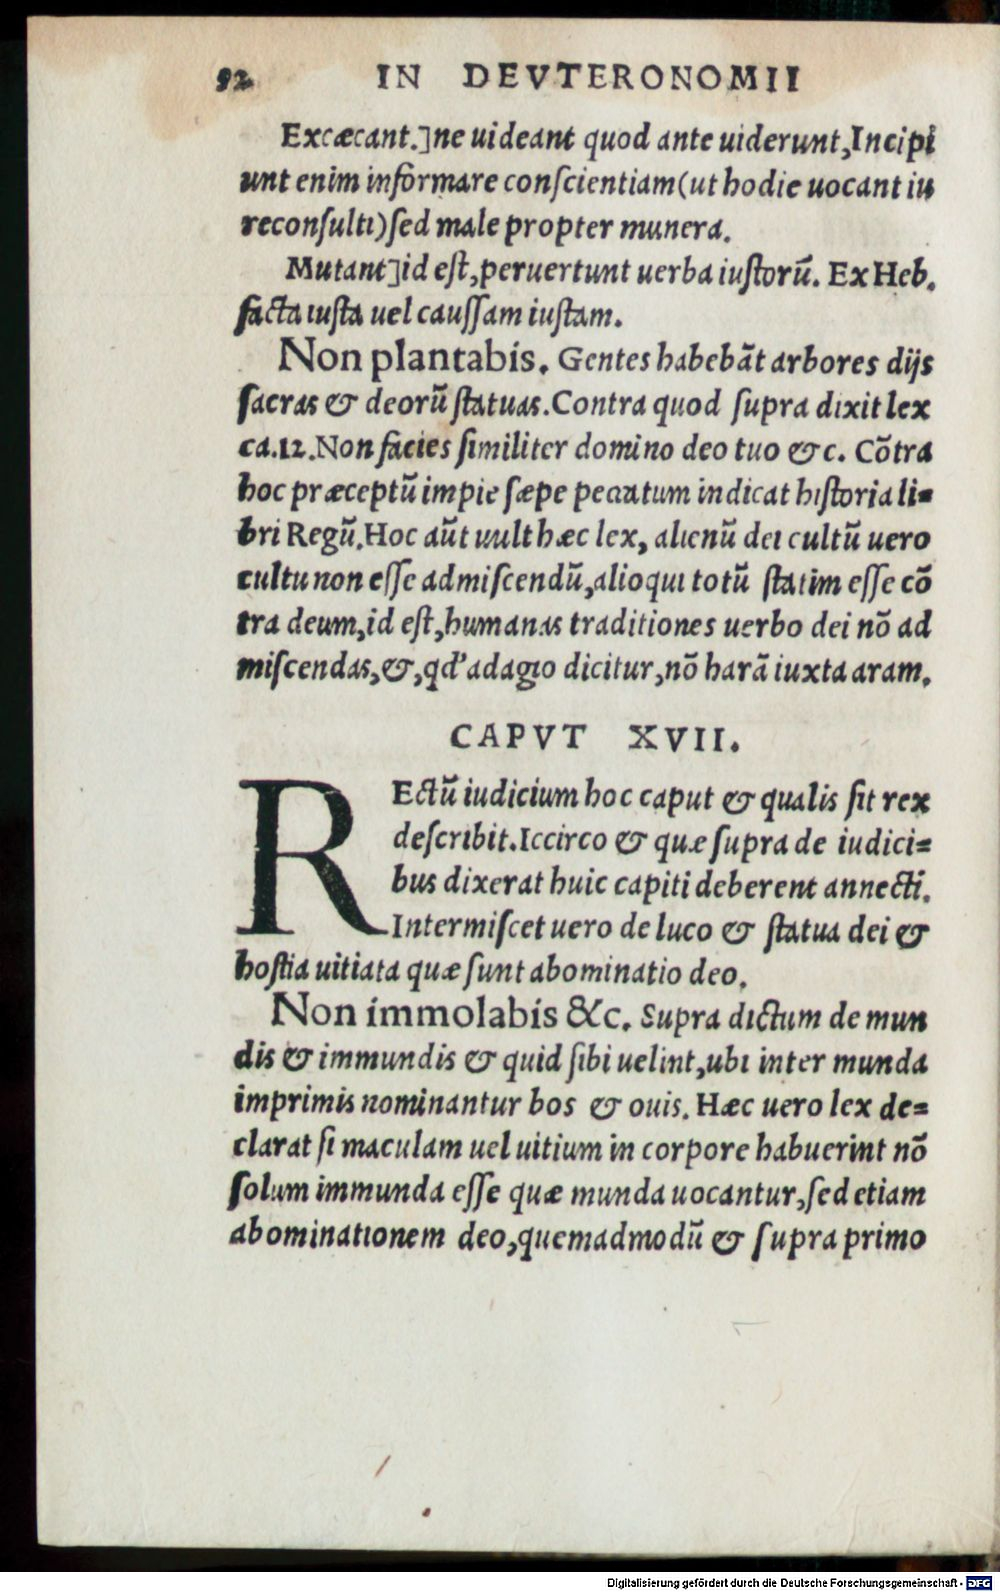 92 IN DEVTERONOMII
Excæcant.]ne uideant quod ante uiderunt,Incipi
unt enim informare conſcientiam(ut hodie uocant iu
reconſulti)ſed male propter munera.
Mutant]id eſt,peruertunt uerba iuſtorũ. Ex Heb.
facta iuſta uel cauſſam iuſtam.
Non plantabis. Gentes habebãt arbores dijs
ſacras & deorũ ſtatuas.Contra quod ſupra dixit lex
ca.12.Non facies ſimiliter domino deo tuo &c. Cõtra
hoc præceptũ impie ſæpe peccatum indicat hiſtoria li=
bri Regũ.Hoc aũt uult hæc lex, alienũ dei cultũ uero
cultu non eſſe admiſcendũ,alioqui totũ ſtatim eſſe cõ
tra deum,id eſt,humanas traditiones uerbo dei nõ ad
miſcendas,&,qd' adagio dicitur,nõ harã iuxta aram.
CAPVT XVII.
REctũ iudicium hoc caput & qualis ſit rex
deſcribit.Iccirco & quæ ſupra de iudici=
bus dixerat huic capiti deberent annecti.
Intermiſcet uero de luco & ſtatua dei &
hoſtia uitiata quæ ſunt abominatio deo.
Non immolabis &c. Supra dictum de mun
dis & immundis & quid ſibi uelint,ubi inter munda
imprimis nominantur bos & ouis. Hæc uero lex de=
clarat ſi maculam uel uitium in corpore habuerint nõ
ſolum immunda eſſe quæ munda uocantur,ſed etiam
abominationem deo,quemadmodũ & ſupra primo
Digitalisierung gefördert durch die Deutsche Forschungsgemeinschaft - DFG